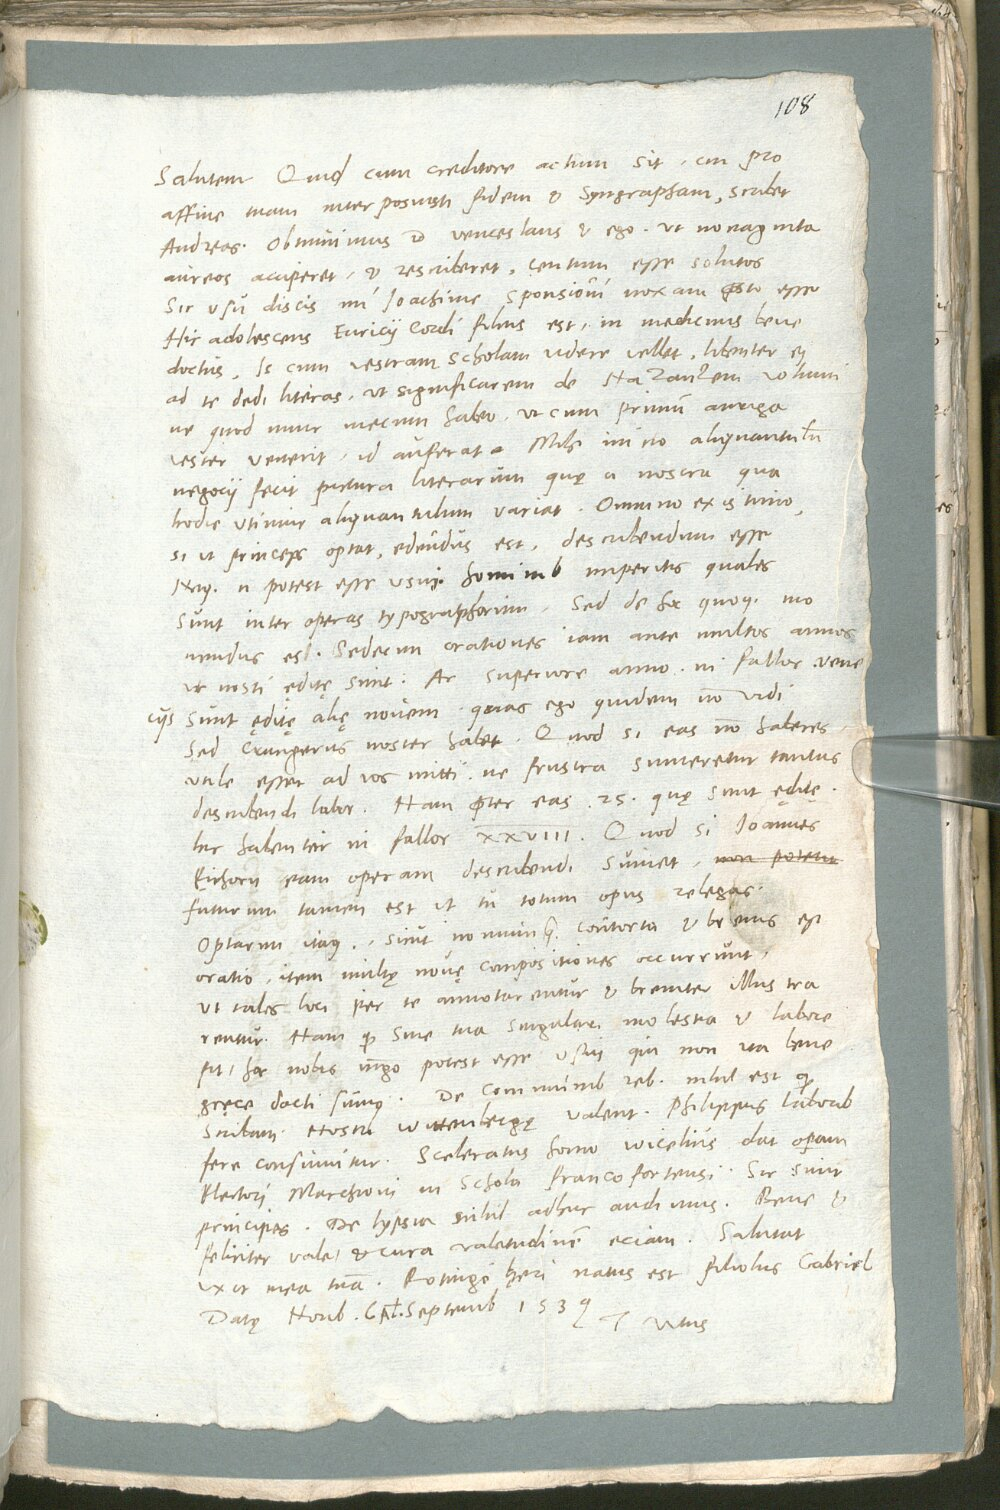 108
Salutem Quid cum creditore actum sit, cui pro
affine tuam interposuisti fidem & Syngrapham, scribet
Andreas. Obtinuimus Venceslaus & ego. Ut nonaginta
aureos acciperet, & rescriberet, Centum esse solutos
Sic usu discis mi Ioachime Sponsioni noxam pręsto esse
Hic adolescens Euricij Cordi filius est, in medicinis bene
doctus, Is cum vestram Scholam videre vellet, libenter ei
ad te dedi literas, ut significarem de Nazanzeni volumi
ne quod nunc mecum habeo, ut cum primum auriga
vester venerit, id auferat. Mihi initio aliquantulū
negocij fecit pictura literarum quę a nostra qua
hodie utimur aliquantulum variat. Omnino existimo,
si ut princeps optat, edendus est, describendum esse
Neq. n potest esse usui hominib imperitis quales
Sunt inter operas typographorum. Sed de hoc quoq. mo
nendus es. Sedecim orationes iam ante multos annos
ut nosti ędite sint. Ac superiore anno, ni fallor, Vene
cijs sunt ęditę alię novem, quas ego quidem nō vidi
Sed Crungerus noster habet. Quod si eas nō haberes,
utile esset ad vos mitti, ne frustra sumeretur tantus
describendi labor. Nam pter eas .25. quę sunt ęditę.
hic habentur ni fallor XXVIII. Quod si Ioannes
Eichorn eam operam describendi sumet, non potent
futurum tamen est ut tu totum opus relegas.
Optarim itaq., sicut nonnunq. contorta & brevis est
oratio, item multę novę compositiones occurrunt,
ut tales loci per te annotarentur & breviter illustra
rentur. Nam q Sine tua Singulari molestia & labore
fit, hoc nobis magno potest esse usui qui non ita bene
gręce docti sumus. De communib reb. nihil est q
Scribam. Nostri Wittenbergę valent. Philippus laborib
fere consumitur. Sceleratus homo Wicelius dat operam
Electori Marchioni in Schola francofortensi. Sic sunt
principes. De lypsia nihil adhuc audimus. Bene &
feliciter vale, & cura valetudinē eciam. Salutat
uxor mea tuā. Rotingo heri natus est filiolus Gabriel
Datę Norib. Cal. Septemb 1539 T Vitus